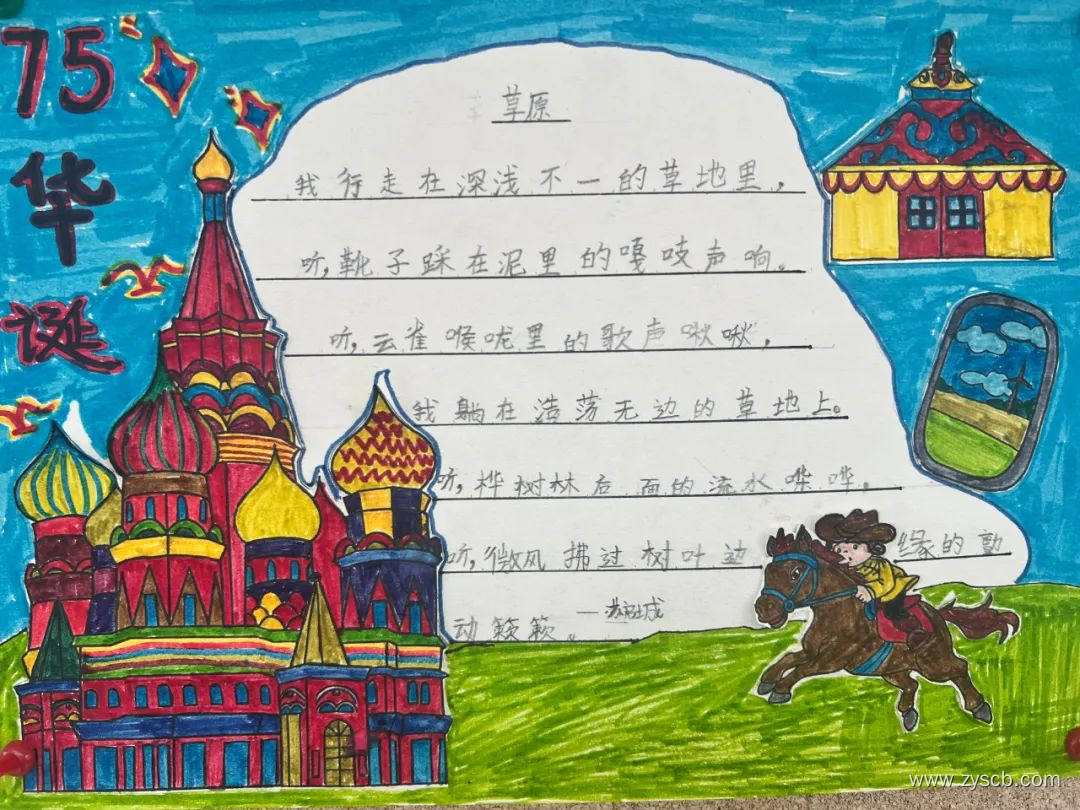 75
华
诞
草原
我行走在深浅不一的草地里，
听，靴子踩在泥里的嘎吱声响。
听，云雀喉咙里的歌声啾啾，
我躺在浩荡无边的草地上。
听，桦树林后面的流水哗哗。
听，微风拂过树叶边缘的
动簌簌。
www.zyscb.com